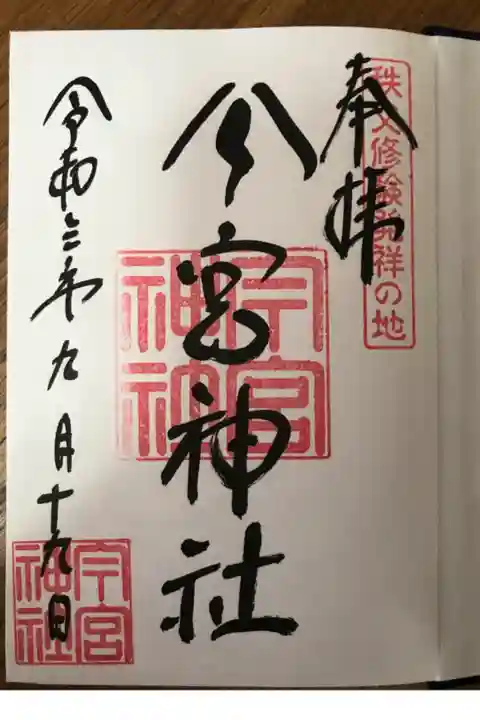 秩父修験発祥の地
奉拝
今宮神社
今宮
神社
令和三年九月十九日
今宮
神社